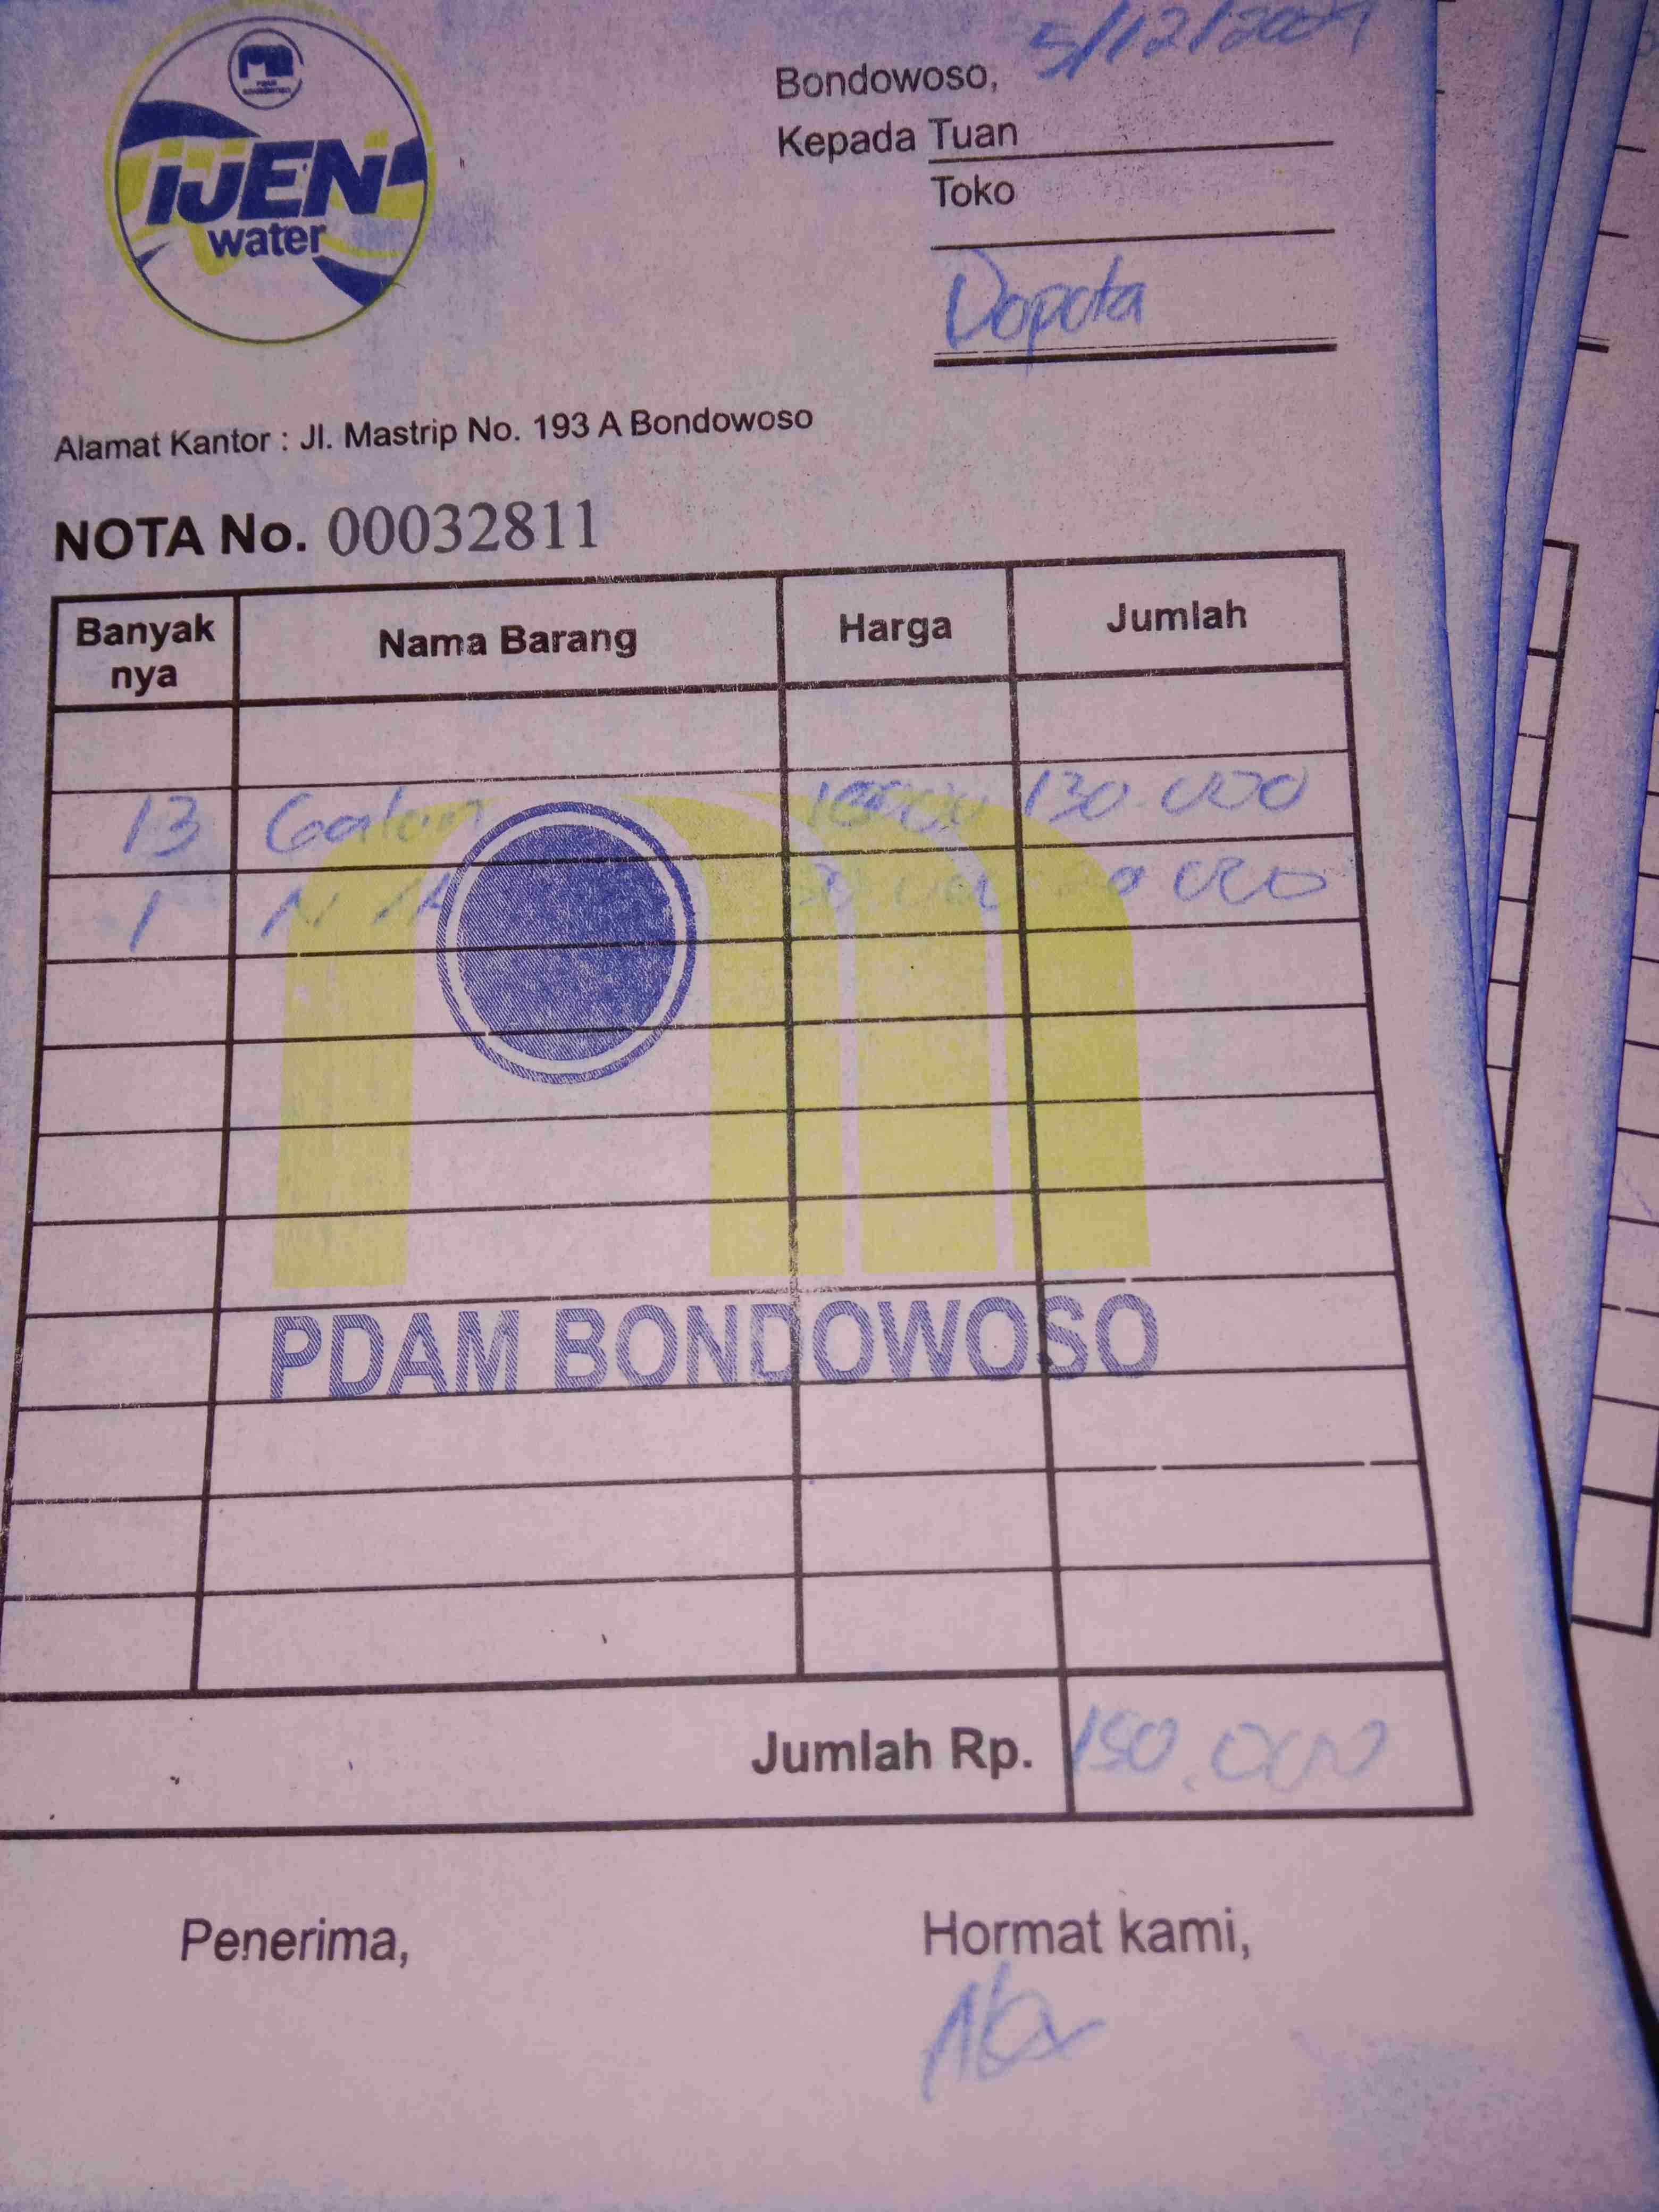 iJEN
water
Bondowoso,
Kepada Tuan
Toko
Dopota
Alamat Kantor : Jl. Mastrip No. 193 A Bondowoso
NOTA No. 00032811
Banyak nya Nama Barang Harga Jumlah
13 Galon 10000 130.000
1
PDAM BONDOWOSO
Jumlah Rp. 150.000
Penerima, Hormat kami,